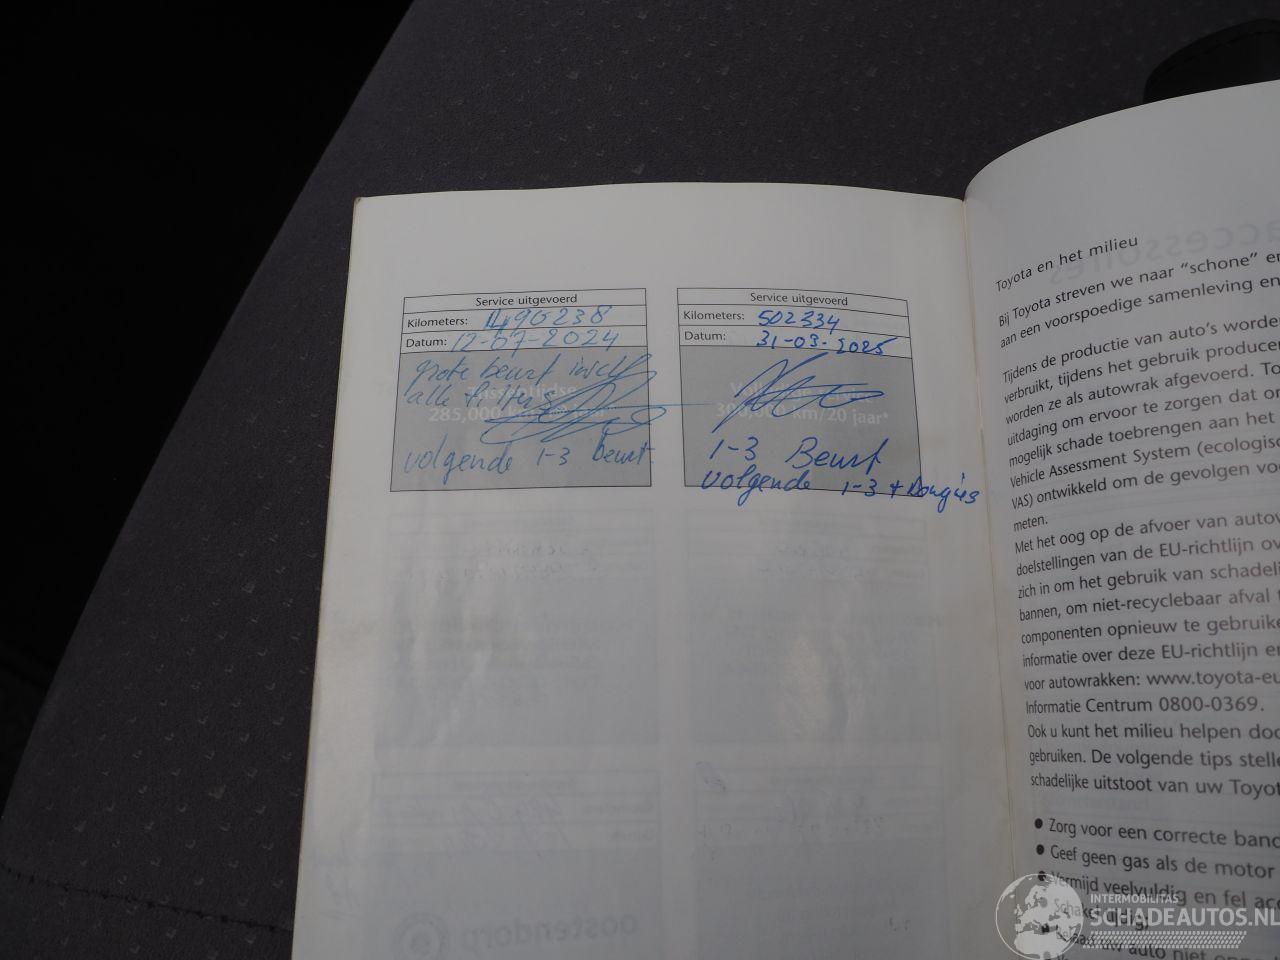 Service uitgevoerd
Kilometers: 496238
Datum: 12-07-2024
grote beurt incl
alle filters
285,000 km
volgende 1-3 Beurt.
Service uitgevoerd
Kilometers: 502334
Datum: 31-03-2025
300,000 km/20 jaar*
1-3 Beurt
volgende 1-3 +
Toyota en het milieu
Bij Toyota streven we naar “schone” en
aan een voorspoedige samenleving en
Tijdens de productie van auto’s worde
verbruikt, tijdens het gebruik producer
worden ze als autowrak afgevoerd. To
uitdaging om ervoor te zorgen dat on
mogelijk schade toebrengen aan het
Vehicle Assessment System (ecologisc
VAS) ontwikkeld om de gevolgen voo
meten.
Met het oog op de afvoer van autow
doelstellingen van de EU-richtlijn ov
zich in om het gebruik van schadeli
bannen, om niet-recyclebaar afval t
componenten opnieuw te gebruike
informatie over deze EU-richtlijn en
voor autowrakken: www.toyota-eu
Informatie Centrum 0800-0369.
Ook u kunt het milieu helpen doo
gebruiken. De volgende tips stelle
schadelijke uitstoot van uw Toyot
● Zorg voor een correcte banc
● Geef geen gas als de motor
● Vermijd veelvuldig en fel acc
INTERMOBILITAS
SCHADEAUTOS.NL